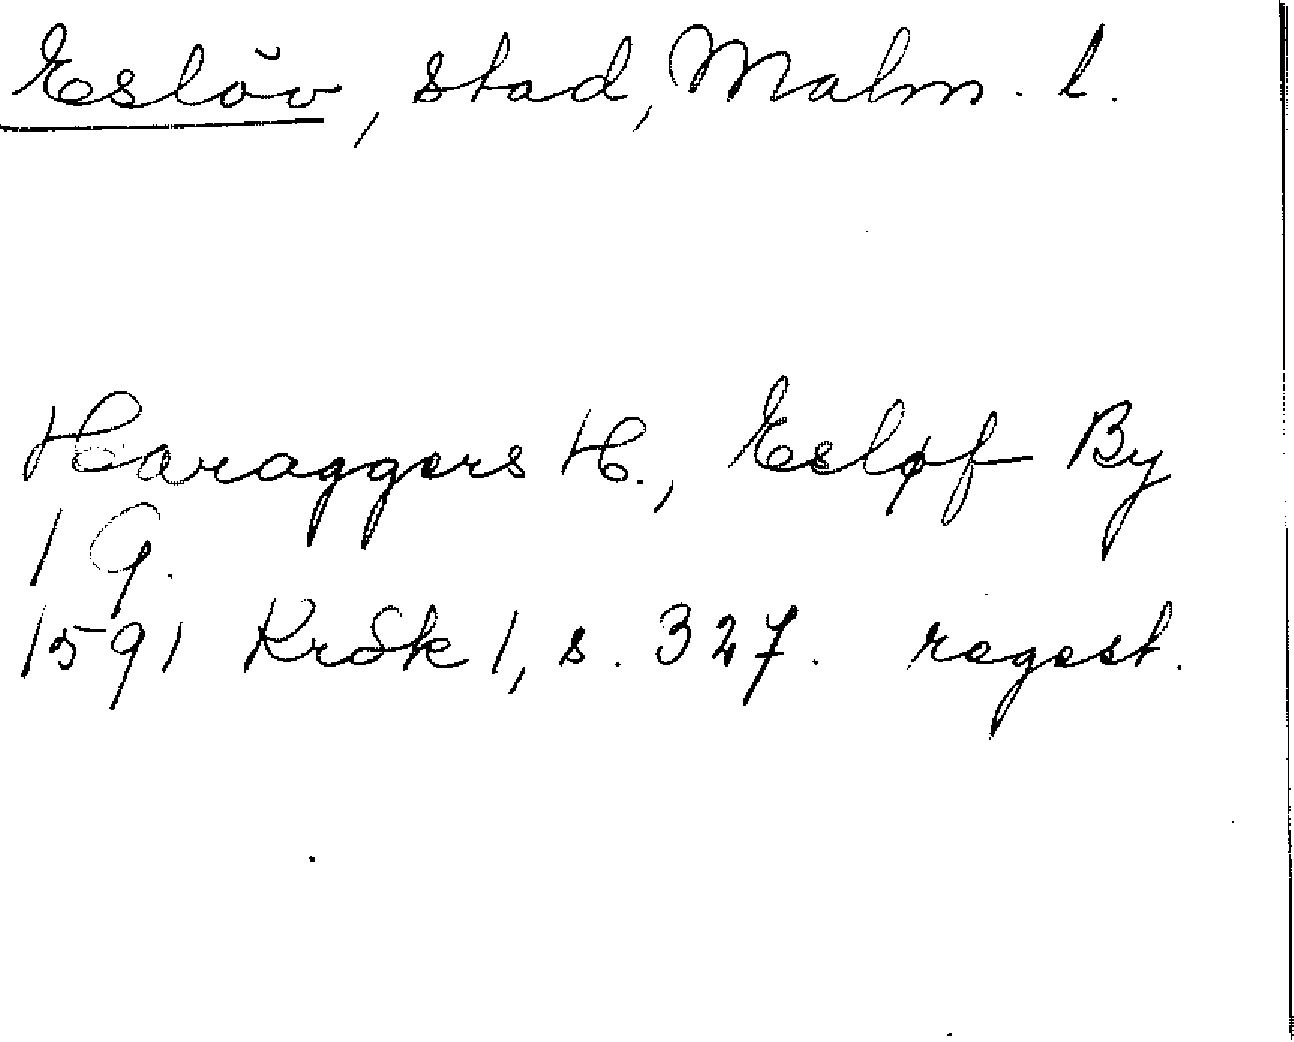 Eslöv, stad, Malm. l.
Haraggers H., Esløf By
1 G.
1591 KrSk 1, s. 327. regest.